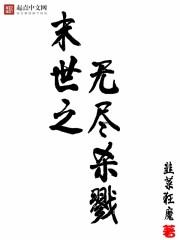 起点中文网
末世之
无尽杀戮
韭菜狂魔 著